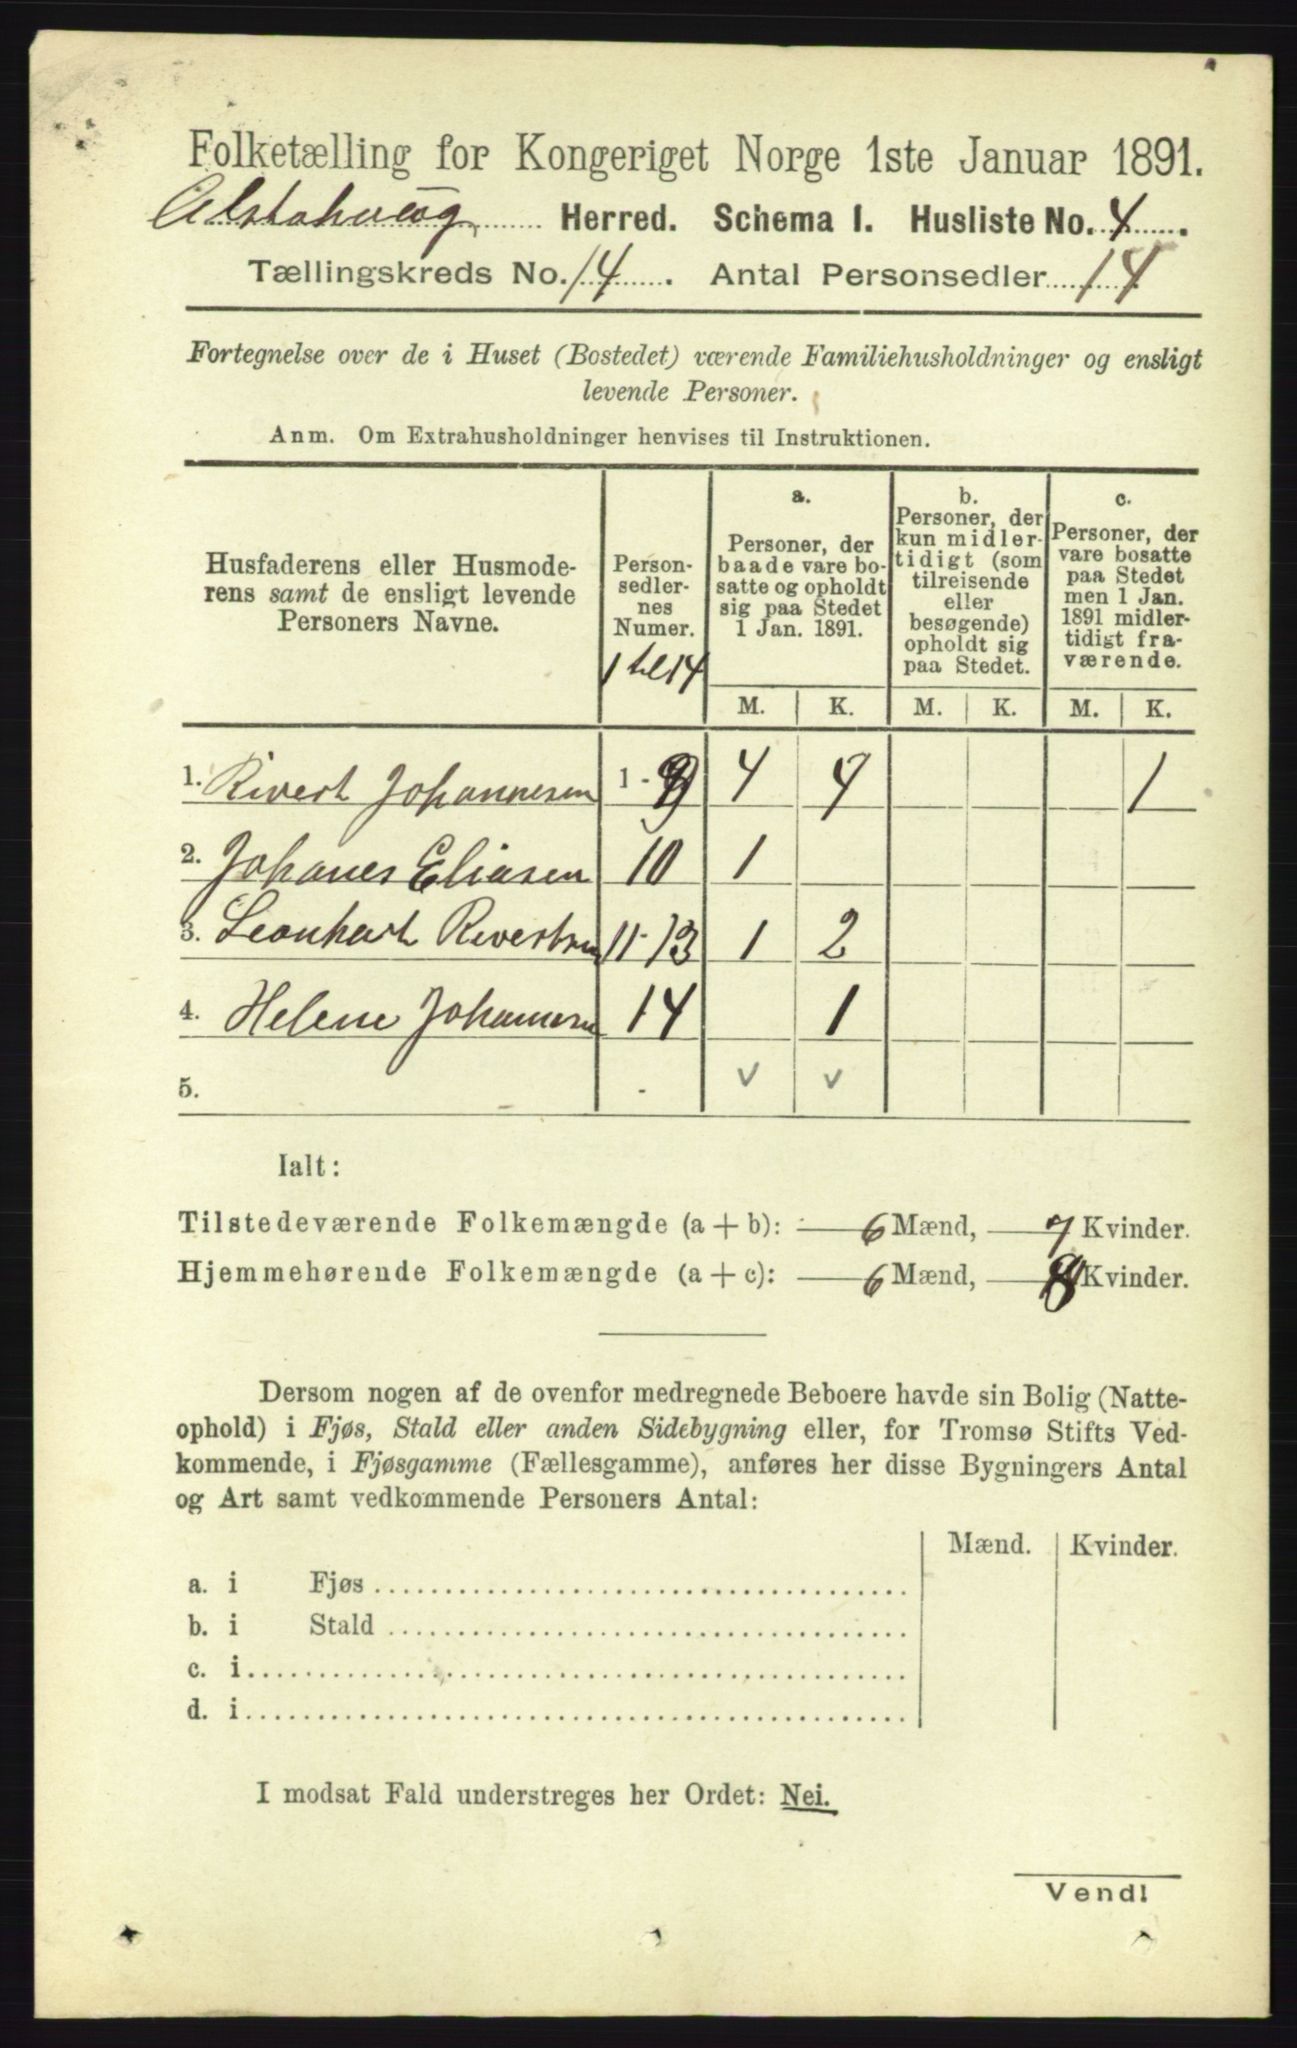 Folketælling for Kongeriget Norge 1ste Januar 1891.
Alstahaug Herred. Schema I. Husliste No. 4
Tællingskreds No. 14. Antal Personsedler 14
Fortegnelse over de i Huset (Bostedet) værende Familiehusholdninger og ensligt
levende Personer.
Anm. Om Extrahusholdninger henvises til Instruktionen.
Husfaderens eller Husmode-
rens samt de ensligt levende
Personers Navne.
Person-
sedler-
nes
Numer.
1 til 14
a.
Personer, der
baade vare bo-
satte og opholdt
sig paa Stedet
1 Jan. 1891.
b.
Personer, der
kun midler-
tidigt (som
tilreisende
eller
besøgende)
opholdt sig
paa Stedet.
c.
Personer, der
vare bosatte
paa Stedet
men 1 Jan.
1891 midler-
tidigt fra-
værende.
M. K. M. K. M. K.
1. Rivert Johannesen 1 - 9 4 4 1
2. Johanes Eliasen 10 1
3. Leonhart Rivertsen 11-13 1 2
4. Helene Johannesen 14 1
5. - v v
Ialt:
Tilstedeværende Folkemængde (a + b): 6 Mænd, 7 Kvinder.
Hjemmehørende Folkemængde (a + c): 6 Mænd, 8 Kvinder.
Dersom nogen af de ovenfor medregnede Beboere havde sin Bolig (Natte-
ophold) i Fjøs, Stald eller anden Sidebygning eller, for Tromsø Stifts Ved-
kommende, i Fjøsgamme (Fællesgamme), anføres her disse Bygningers Antal
og Art samt vedkommende Personers Antal:
Mænd. Kvinder.
a. i Fjøs
b. i Stald
c. i
d. i
I modsat Fald understreges her Ordet: Nei.
Vend!